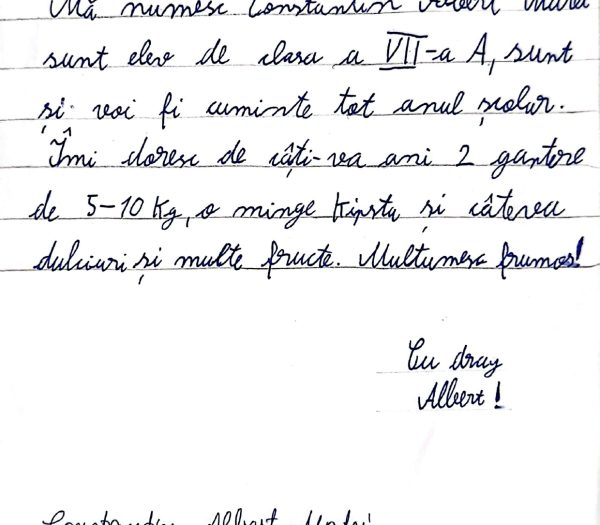 Mă numesc Constantin Albert
sunt elev de clasa a VII-a A, sunt
și voi fi cuminte tot anul școlar.
Îmi doresc de câți-va ani 2 gantere
de 5-10 Kg, o minge Kipsta și câteva
dulciuri și multe fructe. Multumesc frumos!
Cu drag
Albert!
Constantin Albert